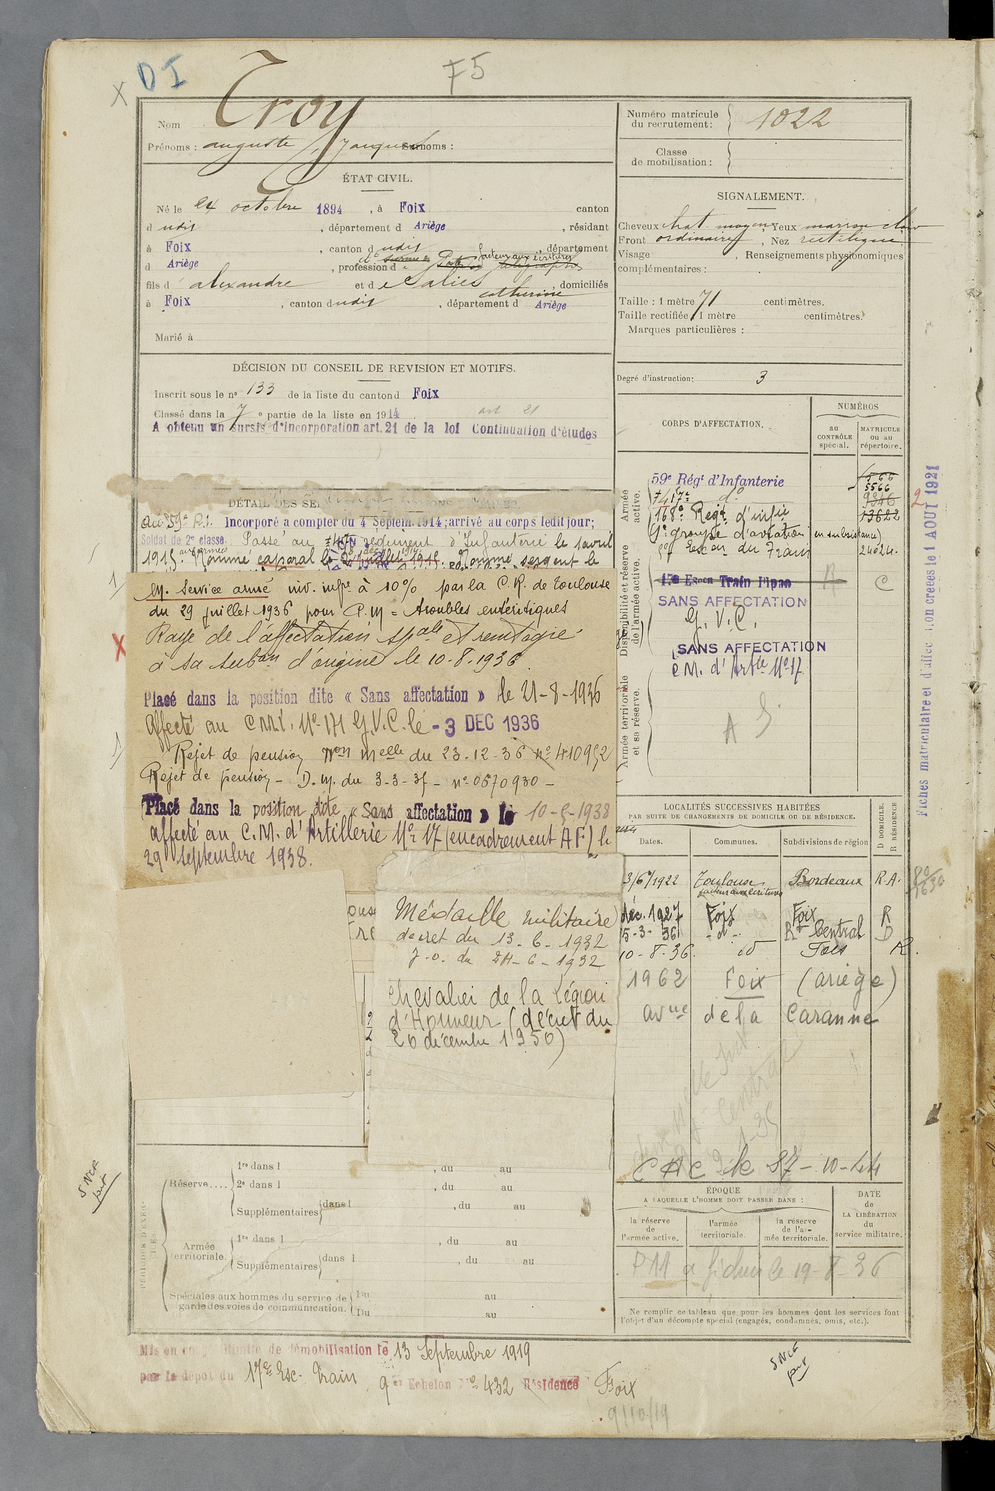 X DI
F5
Nom Troy
Prénoms : auguste, Jacques Surnoms :
Numéro matricule du recrutement : 1022
Classe de mobilisation :
ÉTAT CIVIL.
Né le 24 octobre 1894, à Foix canton
d udit, département d Ariège, résidant
à Foix, canton d udit, département
d Ariège, profession d facteur aux écritures
fils d' alexandre et d catherine domiciliés
à Foix, canton d udit, département d Ariège
Marié à
SIGNALEMENT.
Cheveux chat moyen, Yeux marron clair
Front ordinaire, Nez rectiligne
Visage , Renseignements physionomiques
complémentaires :
Taille : 1 mètre 71 centimètres.
Taille rectifiée : 1 mètre centimètres.
Marques particulières :
Degré d'instruction : 3
DÉCISION DU CONSEIL DE REVISION ET MOTIFS.
Inscrit sous le n° 133 de la liste du canton d Foix
Classé dans la 7e partie de la liste en 1914 art 21
A obtenu un sursis d'incorporation art. 21 de la loi Continuation d'études
DÉTAIL DES
Incorporé a compter du 4 Septem. 1914; arrivé au corps ledit jour;
Soldat de 2e classe. Passé au régiment d'Infanterie le 1 avril
1915. Nommé caporal le Nommé sergent le
M. Service armé inv. infre à 10% par la C.R. de Toulouse
du 29 juillet 1936 pour P.M = troubles entéritiques
Rayé de l'affectation spale et réintégré
à sa subon d'origine le 10-8-1936.
Placé dans la position dite « Sans affectation » le 21-8-1936
Affecté au C.M.I. N° 171 G.V.C. le - 3 DEC 1936
Rejet de pension Mon Melle du 23-12-36 n° 410952
Rejet de pension - D.M. du 3-3-37 - n° 0570930 -
Placé dans la position dite « Sans affectation » le 10-5-1938
affecté au C.M. d'Artillerie N° 17 (encadrement AF) le
29 septembre 1938.
Médaille militaire
décret du 13-6-1932
J.O. du 24-6-1932
Chevalier de la Légion
d'Honneur (décret du
20 décembre 1950)
CORPS D'AFFECTATION.
NUMÉROS
au CONTRÔLE spécial.
MATRICULE ou au répertoire.
Armée active.
59e Régt d'Infanterie
417e do
168e Régt d'infie
1er groupe d'aviation
Escon du Train
5566
13622
Disponibilité et réserve de l'armée active.
17e Escon Train
R C
SANS AFFECTATION
G.V.C.
SANS AFFECTATION
C M. d'Artlle N° 17
Armée territoriale et sa réserve.
Fiches matriculaire et d'affectation créées le 1 AOUT 1921
LOCALITÉS SUCCESSIVES HABITÉES
PAR SUITE DE CHANGEMENTS DE DOMICILE OU DE RÉSIDENCE.
Dates. Communes. Subdivisions de région D DOMICILE. R RÉSIDENCE.
3/6/1922 Toulouse Bordeaux R.A.
facteur aux écritures
déc. 1927 Foix Foix R
5-3-36 -do- Rt Central D
10-8-36. id Foix R.
1962 Foix (ariège)
avnue de la Caranne
CAC le 27-10-44
ÉPOQUE
A LAQUELLE L'HOMME DOIT PASSER DANS :
la réserve de l'armée active.
l'armée territoriale.
la réserve de l'armée territoriale.
DATE de LA LIBÉRATION du service militaire.
P11 a fichier le 19-8-36
Ne remplir ce tableau que pour les hommes dont les services font
l'objet d'un décompte spécial (engagés, condamnés, omis, etc.).
Réserve.... 1re dans l , du au
2e dans l , du au
Supplémentaires dans l , du au
Armée territoriale. 1re dans l , du au
Supplémentaires dans l , du au
Spéciales aux hommes du service de garde des voies de communication. Du au
Du au
SNCF
SNCF
Mis en congé illimité de démobilisation le 13 Septembre 1919
par le dépôt du 17e Esc. Train 9e Echelon N° 432 Résidence Foix
9/10/19